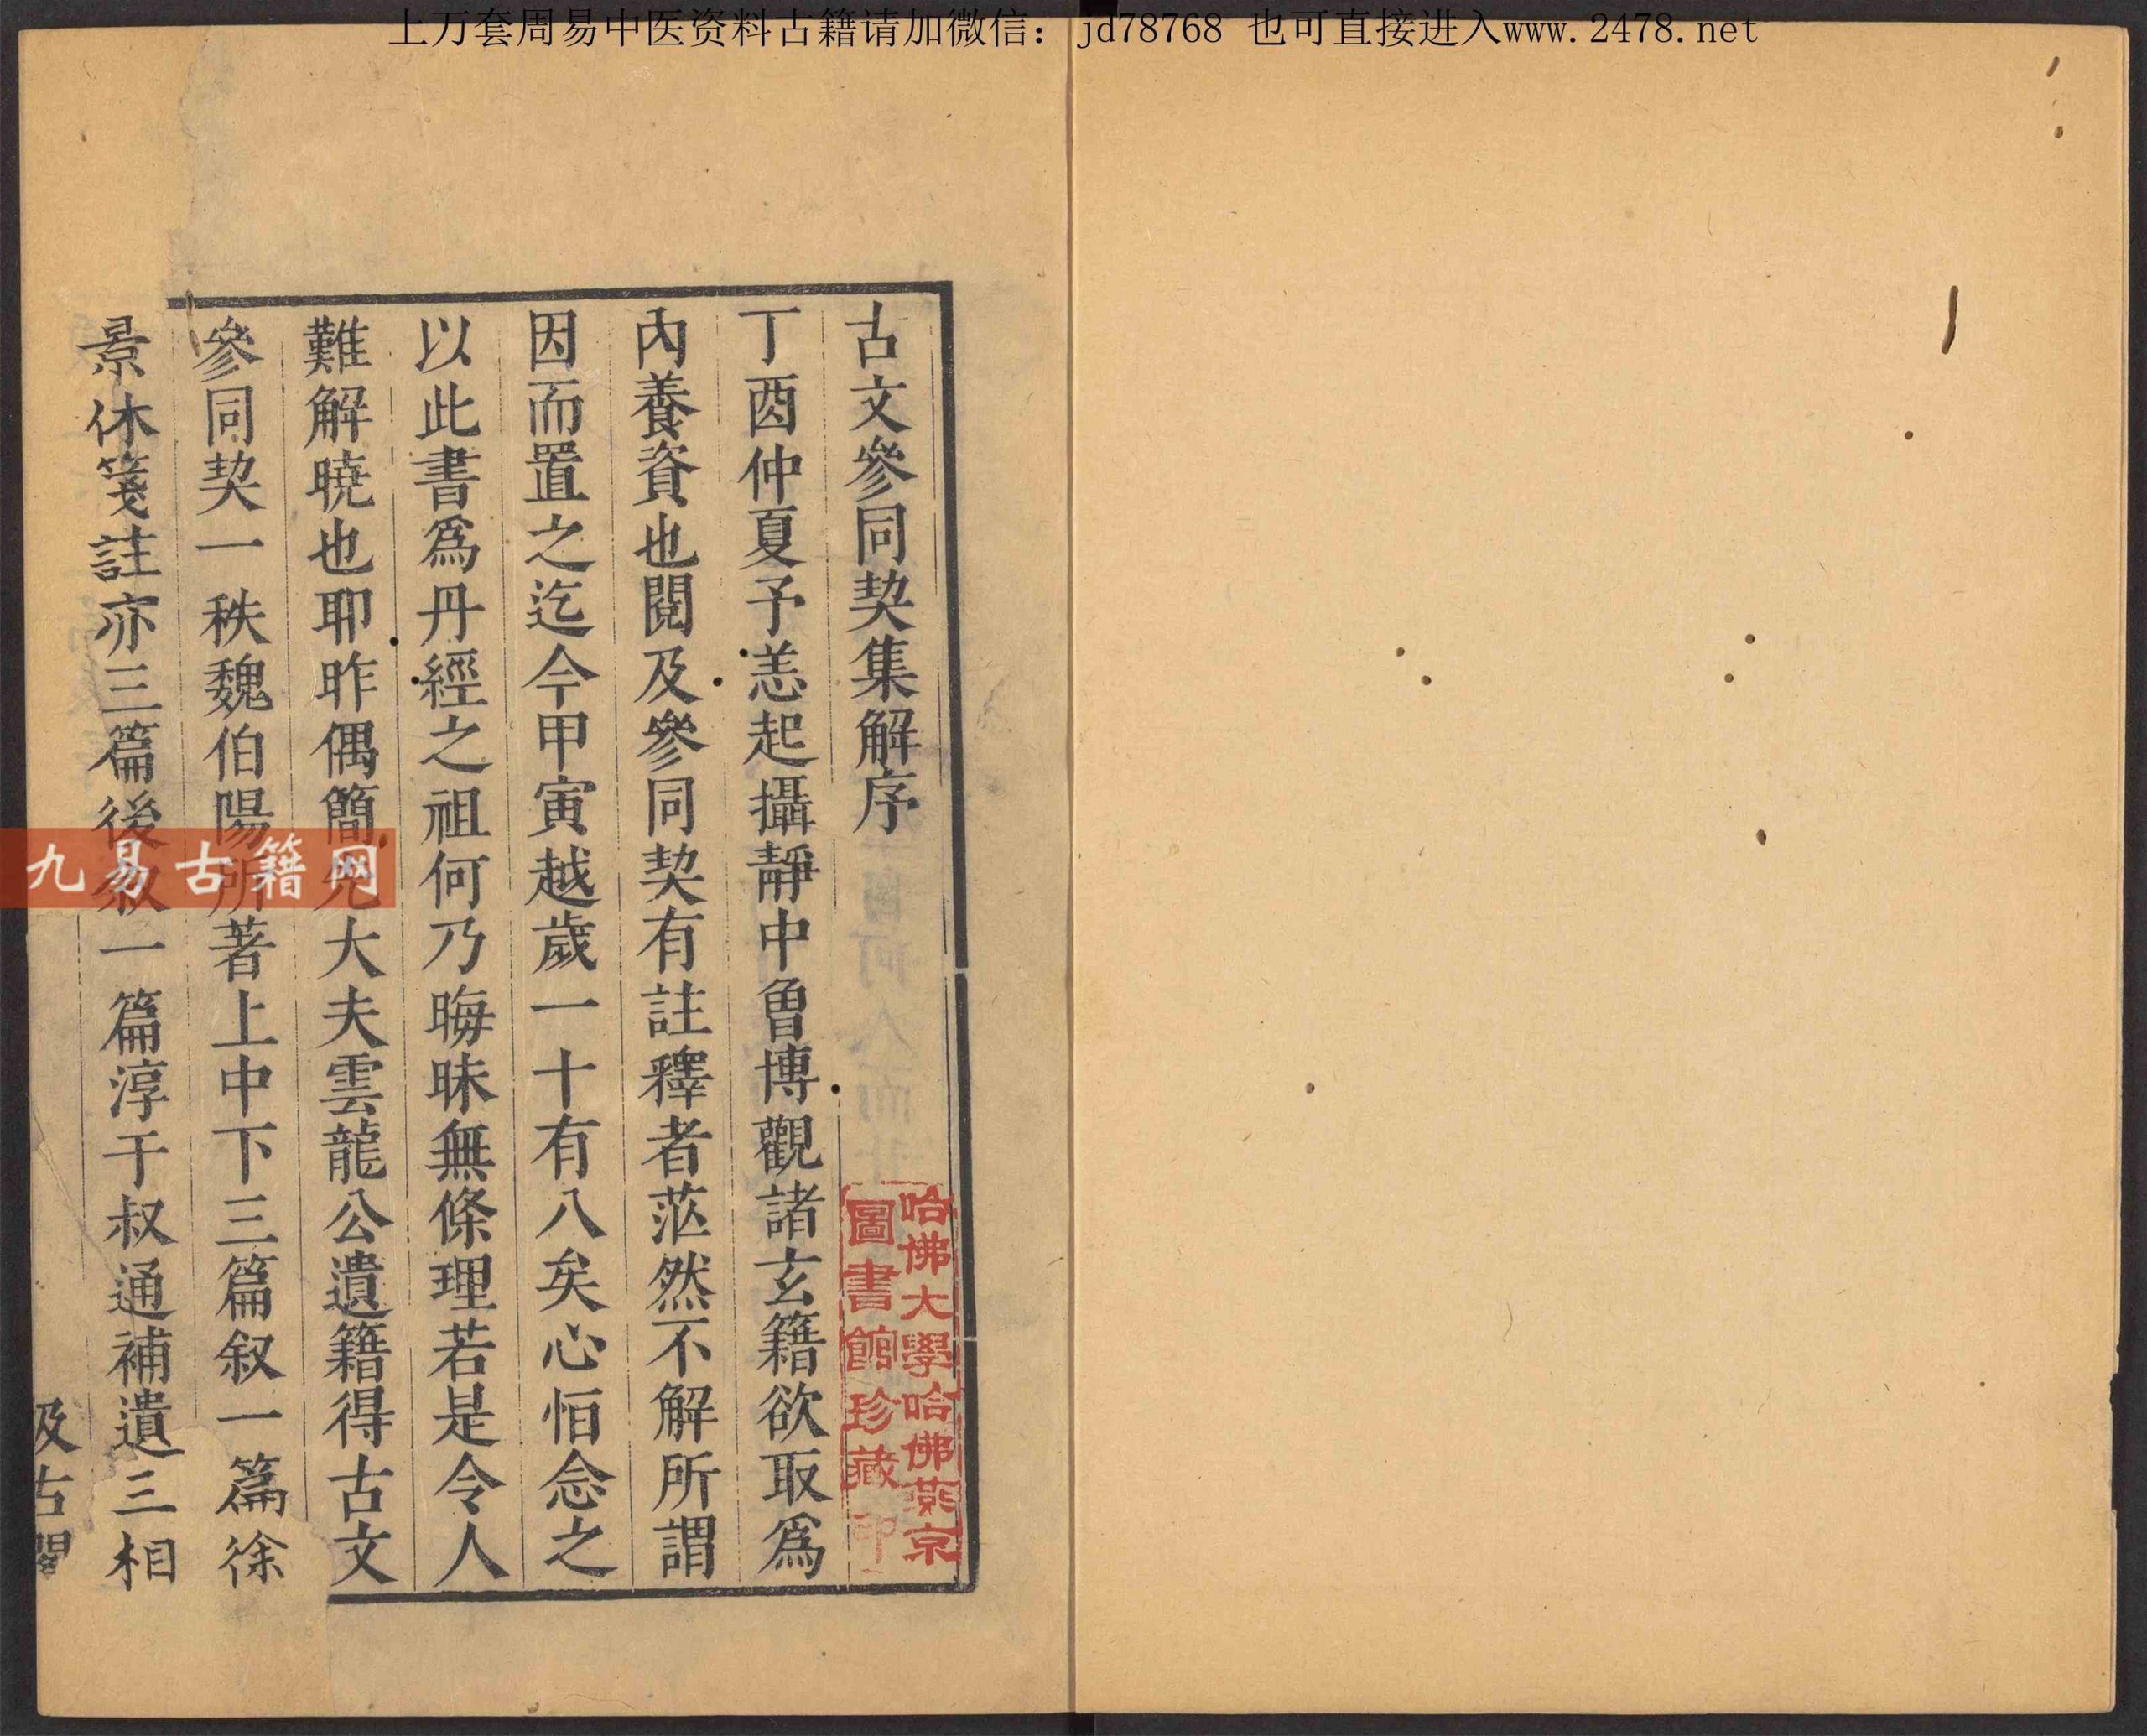 上万套周易中医资料古籍请加微信：jd78768 也可直接进入www.2478.net
古文參同契集解序
丁酉仲夏予恙起攝靜中魯博觀諸玄籍欲取爲
內養資也閱及參同契有註釋者茫然不解所謂
因而置之迄今甲寅越歲一十有八矣心恒念之
以此書爲丹經之祖何乃晦昧無條理若是令人
難解曉也耶昨偶簡先大夫雲龍公遺籍得古文
參同契一秩魏伯陽所著上中下三篇叙一篇徐
景休箋註亦三篇後叙一篇淳于叔通補遺三相
汲古閣
哈佛大學哈佛燕京
圖書館珍藏印
九易古籍网